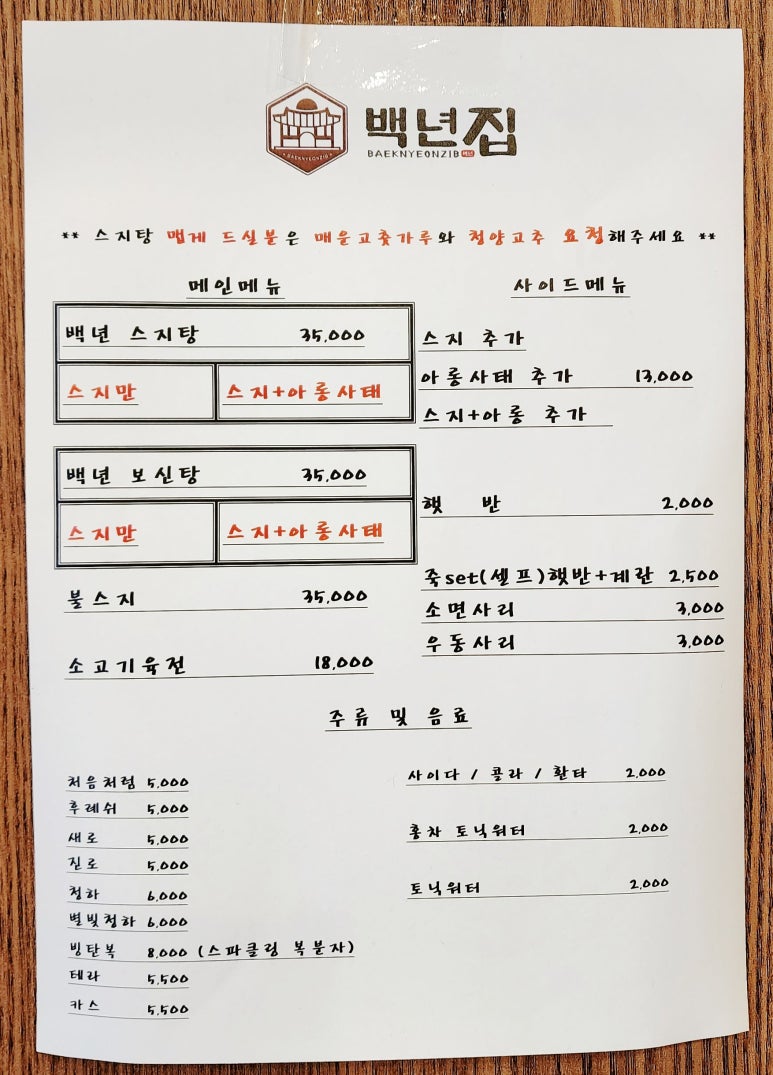 백년집
BAEKNYEONZIB
BAEKNYEONZIB
** 스지탕 맵게 드실분은 매운고춧가루와 청양고추 요청해주세요 **
메인메뉴
백년 스지탕 35,000
스지만 스지+아롱사태
백년 보신탕 35,000
스지만 스지+아롱사태
불스지 35,000
소고기육전 18,000
사이드메뉴
스지 추가
아롱사태 추가 13,000
스지+아롱 추가
햇 반 2,000
죽set(셀프)햇반+계란 2,500
소면사리 3,000
우동사리 3,000
주류 및 음료
처음처럼 5,000
후레쉬 5,000
새로 5,000
진로 5,000
청하 6,000
별빛청하 6,000
빙탄복 8,000 (스파클링 복분자)
테라 5,500
카스 5,500
사이다 / 콜라 / 환타 2,000
홍차 토닉워터 2,000
토닉워터 2,000